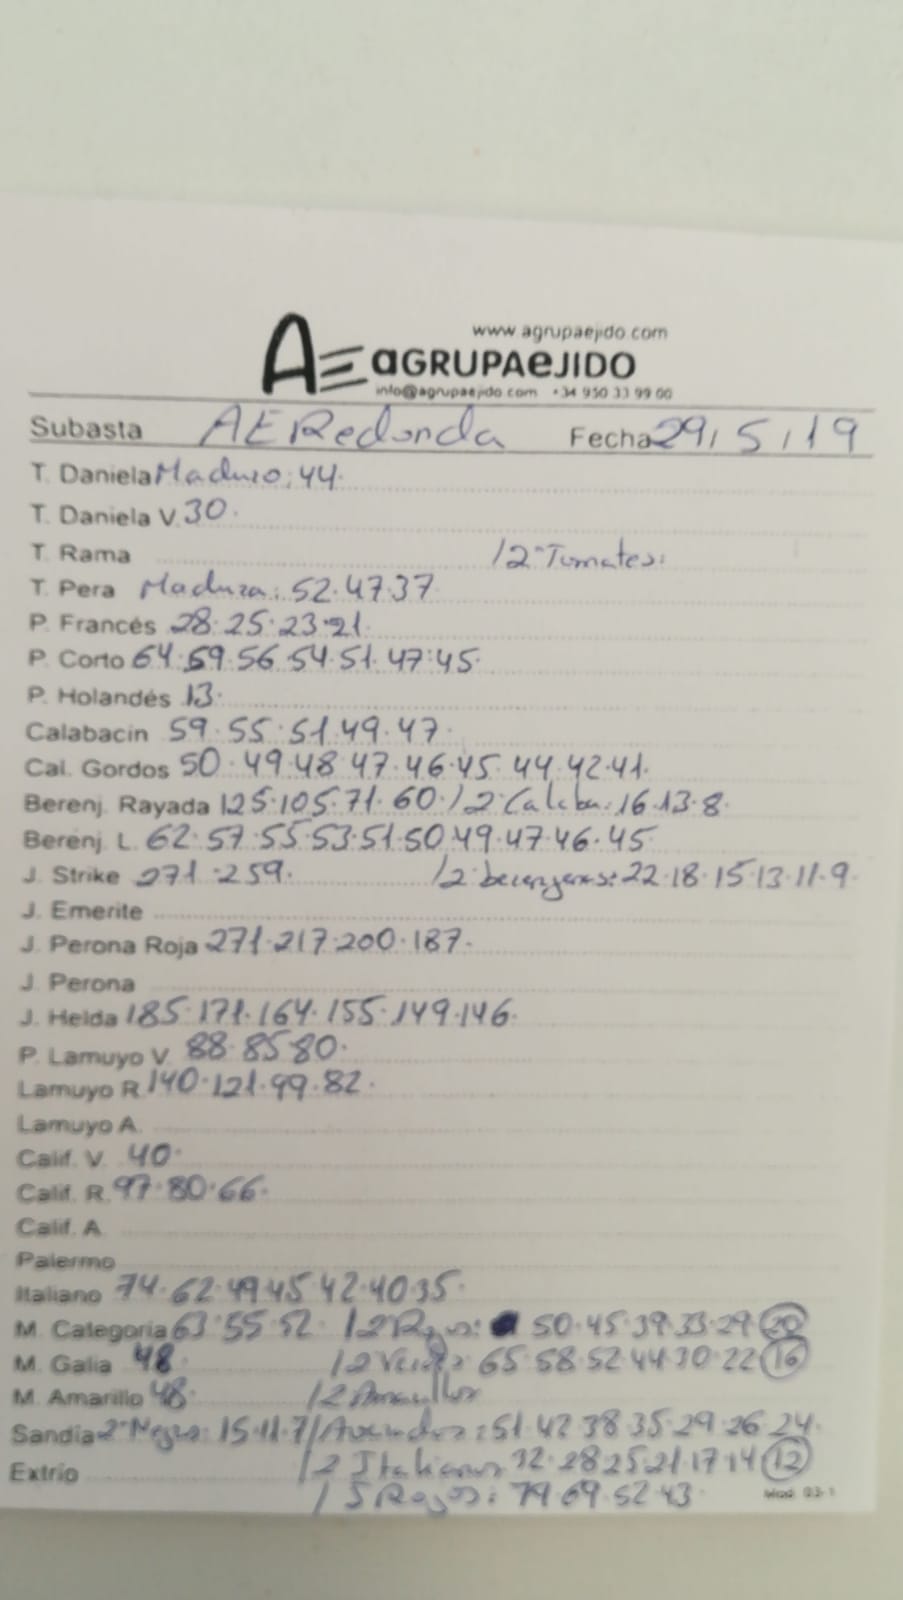 www.agrupaejido.com
AE aGRUPAeJIDO
info@agrupaejido.com +34 950 33 99 00
Subasta AE Redonda Fecha 29/5/19
T. Daniela Maduro: 44.
T. Daniela V. 30.
T. Rama /2ª Tomates:
T. Pera Madura: 52.47.37
P. Francés 28.25.23.21.
P. Corto 64.59.56.54.51.47.45.
P. Holandés 13.
Calabacín 59.55.51.49.47.
Cal. Gordos 50.49.48.47.46.45.44.42.41.
Berenj. Rayada 125.105.71.60./2ª Calaba: 16.13.8.
Berenj. L. 62.57.55.53.51.50.49.47.46.45.
J. Strike 271.259. /2ª berenjenas: 22.18.15.13.11.9.
J. Emerite
J. Perona Roja 271.217.200.187.
J. Perona
J. Helda 185.171.164.155.149.146.
P. Lamuyo V. 88.85.80.
Lamuyo R. 140.121.99.82.
Lamuyo A.
Calif. V. 40.
Calif. R. 97.80.66.
Calif. A.
Palermo
Italiano 74.62.49.45.42.40.35.
M. Categoría 63.55.52. /2 Rojos: 50.45.39.33.29.20
M. Galia 48. /2 Verdes: 65.58.52.44.30.22.16
M. Amarillo 48. /2 Amarillos
Sandía 2ª Negra: 15.11.7/ :51.42.38.35.29.26.24.
Extrío /2 Italianos 32.28.25.21.17.14.12
/5 Rojos: 79.69.52.43.
Mod. 03-1